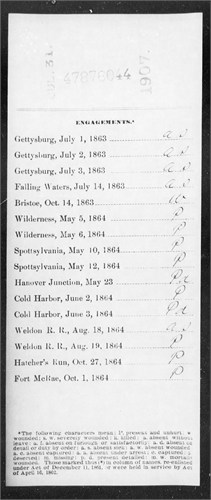 47876044
1907.
ENGAGEMENTS.*
Gettysburg, July 1, 1863 a s
Gettysburg, July 2, 1863 a s
Gettysburg, July 3, 1863 a s
Falling Waters, July 14, 1863 a s
Bristoe, Oct. 14, 1863
Wilderness, May 5, 1864 P
Wilderness, May 6, 1864 P
Spottsylvania, May 10, 1864 P
Spottsylvania, May 12, 1864 P
Hanover Junction, May 23
Cold Harbor, June 2, 1864 P
Cold Harbor, June 3, 1864
Weldon R. R., Aug. 18, 1864 a s
Weldon R. R., Aug. 19, 1864 P
Hatcher's Run, Oct. 27, 1864 P
Fort McRae, Oct. 1, 1864 P
*The following characters mean; P. present and unhurt. w.
wounded; s. w. severely wounded; k. killed; a. absent without
leave; a. f. absent on furlough, or satisfactorily; a. d. absent on
detail or duty by order; a. s. absent sick; a. w. absent wounded;
a. c. absent captured; a. a. absent under arrest; c. captured; d.
deserted; m. missing; m. w. mortally
wounded. Those marked thus in column of names re-enlisted
under Act of December 11, 1861, or were held in service by Act
of April 16, 1862.